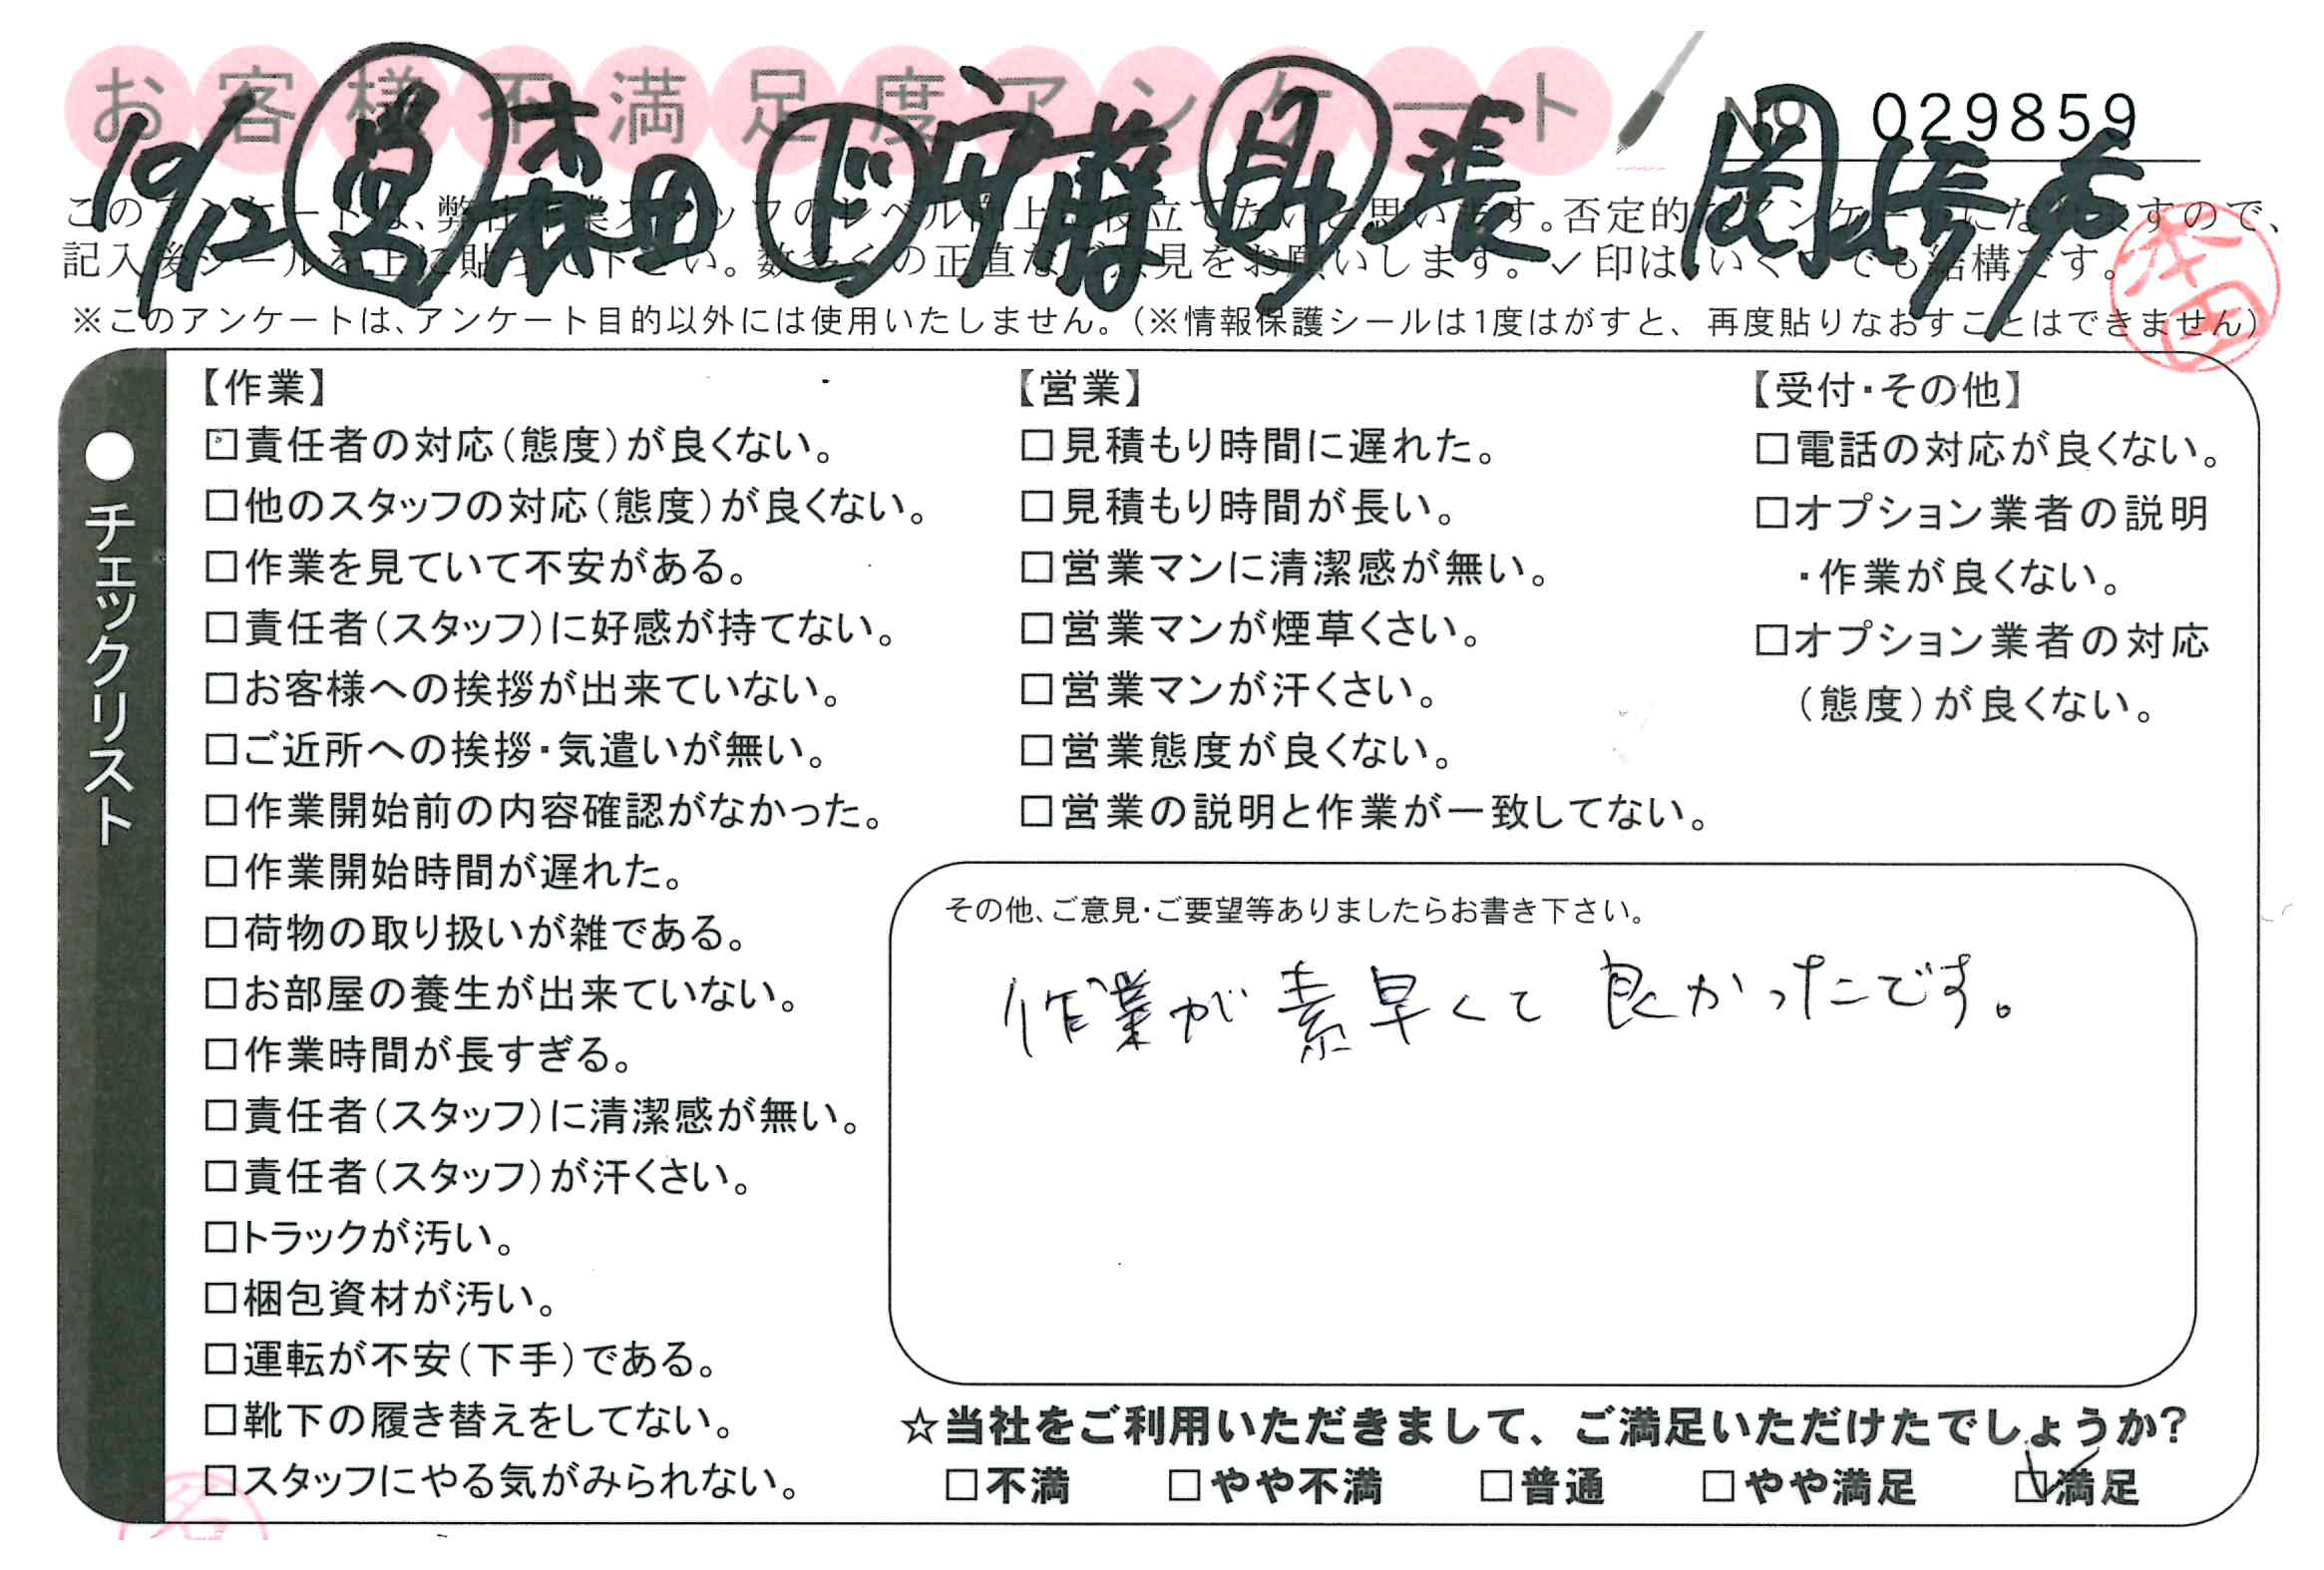 お客様不満足度アンケート
No 029859
10/12 営 森田 ド 安藤 助 張 岡崎市
このアンケートは、弊社作業スタッフのレベル向上に役立てたいと思います。否定的なアンケートになりますので、
記入後シールを上に貼って下さい。数多くの正直なご意見をお願いします。✓印はいくつでも結構です。
※このアンケートは、アンケート目的以外には使用いたしません。（※情報保護シールは1度はがすと、再度貼りなおすことはできません）
本田
●チェックリスト
【作業】
□責任者の対応（態度）が良くない。
□他のスタッフの対応（態度）が良くない。
□作業を見ていて不安がある。
□責任者（スタッフ）に好感が持てない。
□お客様への挨拶が出来ていない。
□ご近所への挨拶・気遣いが無い。
□作業開始前の内容確認がなかった。
□作業開始時間が遅れた。
□荷物の取り扱いが雑である。
□お部屋の養生が出来ていない。
□作業時間が長すぎる。
□責任者（スタッフ）に清潔感が無い。
□責任者（スタッフ）が汗くさい。
□トラックが汚い。
□梱包資材が汚い。
□運転が不安（下手）である。
□靴下の履き替えをしてない。
□スタッフにやる気がみられない。
【営業】
□見積もり時間に遅れた。
□見積もり時間が長い。
□営業マンに清潔感が無い。
□営業マンが煙草くさい。
□営業マンが汗くさい。
□営業態度が良くない。
□営業の説明と作業が一致してない。
【受付・その他】
□電話の対応が良くない。
□オプション業者の説明
・作業が良くない。
□オプション業者の対応
（態度）が良くない。
その他、ご意見・ご要望等ありましたらお書き下さい。
作業が素早くて良かったです。
☆当社をご利用いただきまして、ご満足いただけたでしょうか？
□不満 □やや不満 □普通 □やや満足 ☑満足